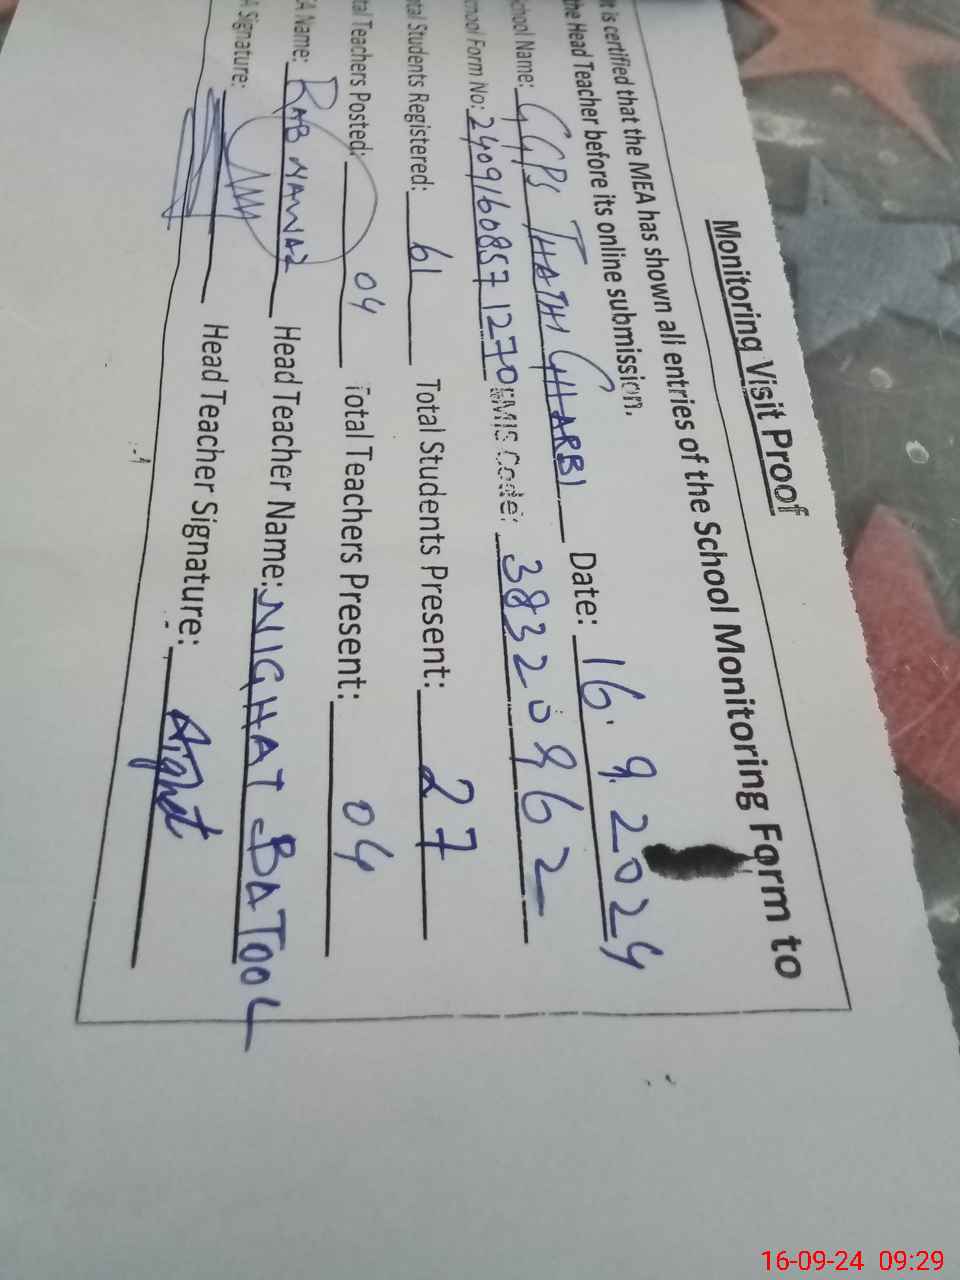 Monitoring Visit Proof
It is certified that the MEA has shown all entries of the School Monitoring Form to
the Head Teacher before its online submission.
School Name: GGPS THATHI GHARBI Date: 16.9.2024
School Form No: 24091608571270 EMIS Code: 38320962
Total Students Registered: 61 Total Students Present: 27
Total Teachers Posted: 04 Total Teachers Present: 04
EA Name: RAB NAWAZ Head Teacher Name: NIGHAT BATOOL
A Signature: Head Teacher Signature:
16-09-24 09:29